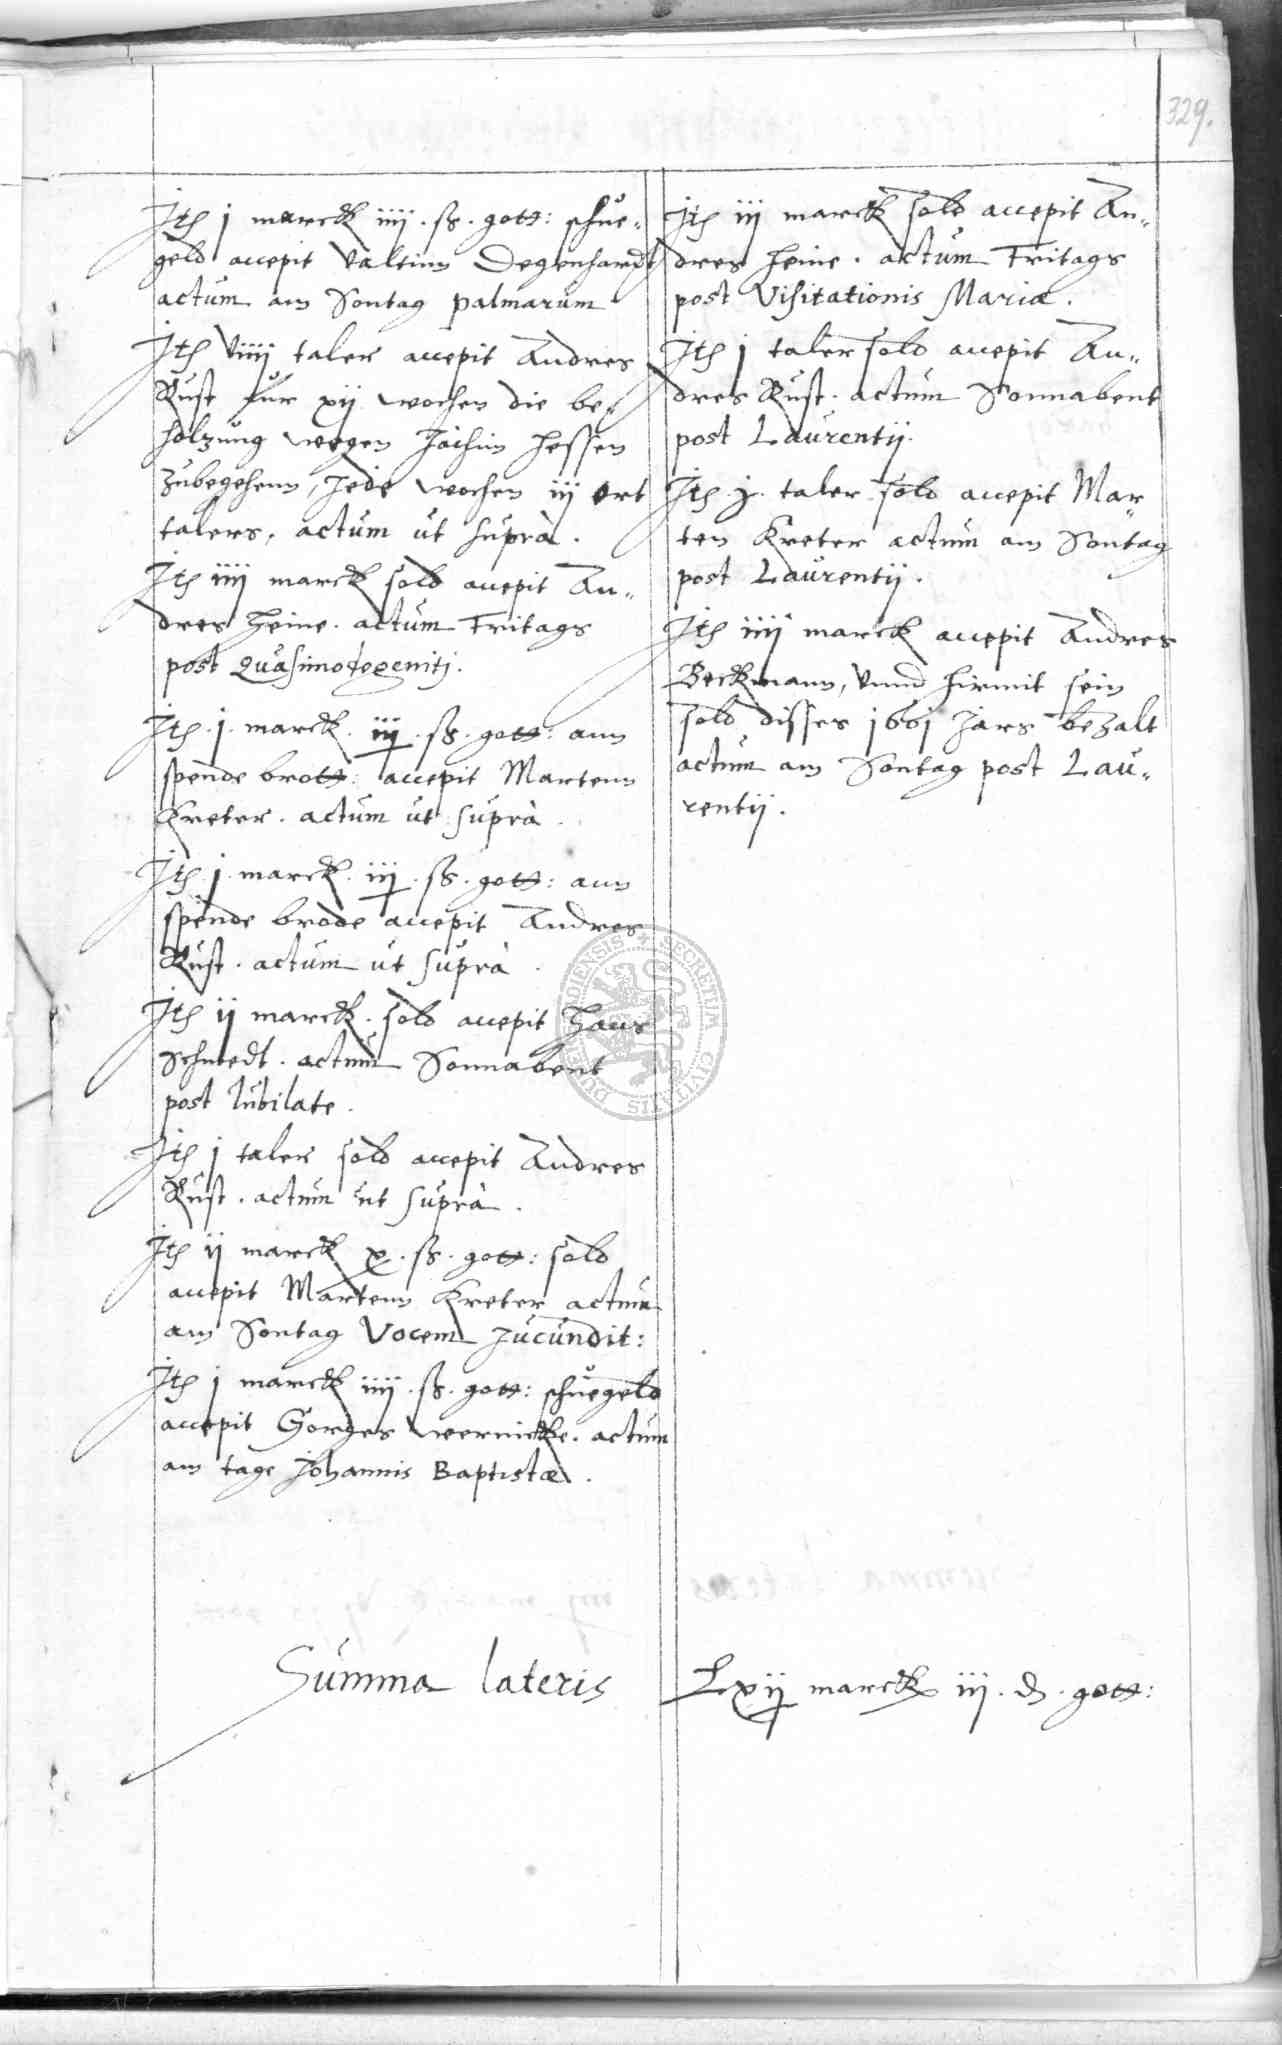 329.
Jtem j marck iiij . ß . gott: schue-
geld accepit Valtinn Degenhardt
actum am Sontag palmarum
Jtem viiij taler accepit Andres
Rust fur xij wochen die be-
holzung wegen Jochim Hessen
zubegehenn, Jede wochen iij ort
talers, actum ut suprà .
Jtem iiij marck sold accepit An-
dres Heine . actum Fritags
post Quasimodogenitj .
Jtem . j . marck . iij . ß . gott: ann
spende brott: accepit Martenn
Kreter . actum ut suprà .
Jtem . j . marck . iij . ß . gott: ann
spende brode accepit Andres
Rust . actum ut suprà .
Jtem ij marck . sold accepit Hans
Schmedt . actum Sonnabent
post Iubilate .
Jtem j taler sold accepit Andres
Rust . actum ut suprà .
Jtem ij marck x . ß . gott: sold
accepit Martenn Kreter actum
am Sontag Vocem Jucundit:
Jtem j marck iiij . ß . gott: schuegeld
accepit Gorges wernicke . actum
am tage Johannis Baptistæ .
Jtem iij marck sold accepit An-
dres Heine . actum Fritags
post Visitationis Mariæ .
Jtem j taler sold accepit An-
dres Rust . actum Sonnabent
post Laurentij .
Jtem . j . taler sold accepit Mar-
ten Kreter actum am Sontag
post Laurentij .
Jtem iiij marck accepit Andres
Beckmann, vnnd hirmit sein
sold disses 1601 Jars bezalt
actum am Sontag post Lau-
rentij .
Summa lateris Lxij marck iij . d . gott:
SECRETUM CIVITATIS DUDERSTADIENSIS